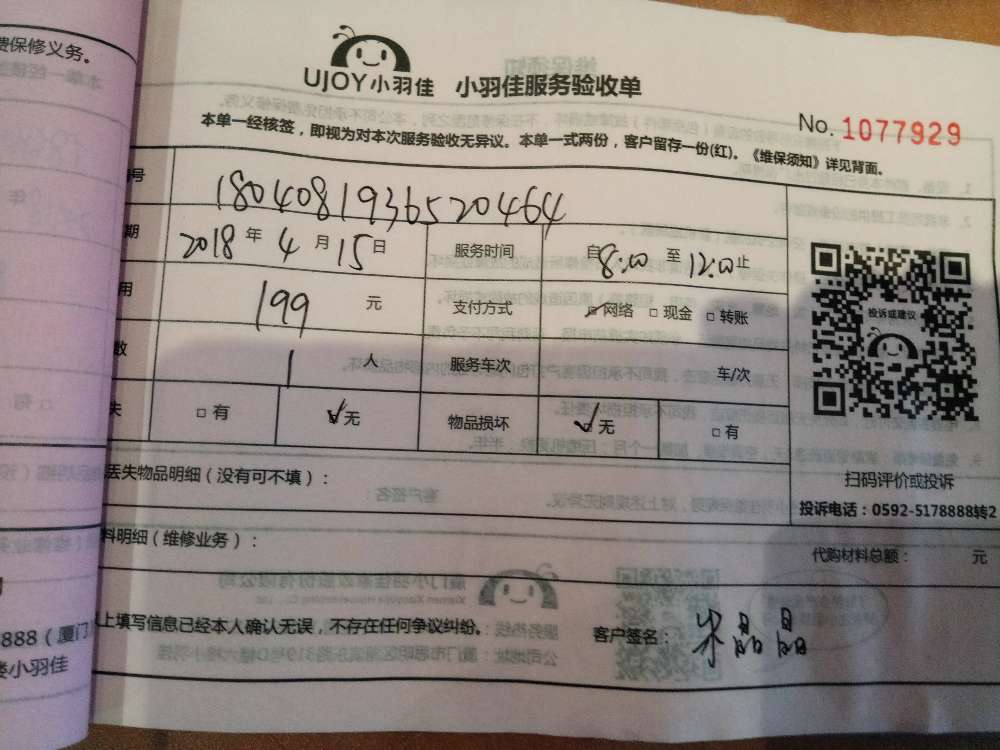 费保修义务。
UJOY小羽佳 小羽佳服务验收单
No. 1077929
本单一经核签，即视为对本次服务验收无异议。本单一式两份，客户留存一份(红)。《维保须知》详见背面。
号 1804081936520464
期 2018 年 4 月 15 日 服务时间 自 8:00 至 12:00 止
用 199 元 支付方式 ☑网络 □现金 □转账
数 1 人 服务车次 车/次
失 □有 ☑无 物品损坏 ☑无 □有
投诉或建议
扫码评价或投诉
投诉电话：0592-5178888转2
丢失物品明细（没有可不填）：
料明细（维修业务）： 代购材料总额： 元
上填写信息已经本人确认无误，不存在任何争议纠纷。 客户签名：
晶晶
8888（厦门
小羽佳